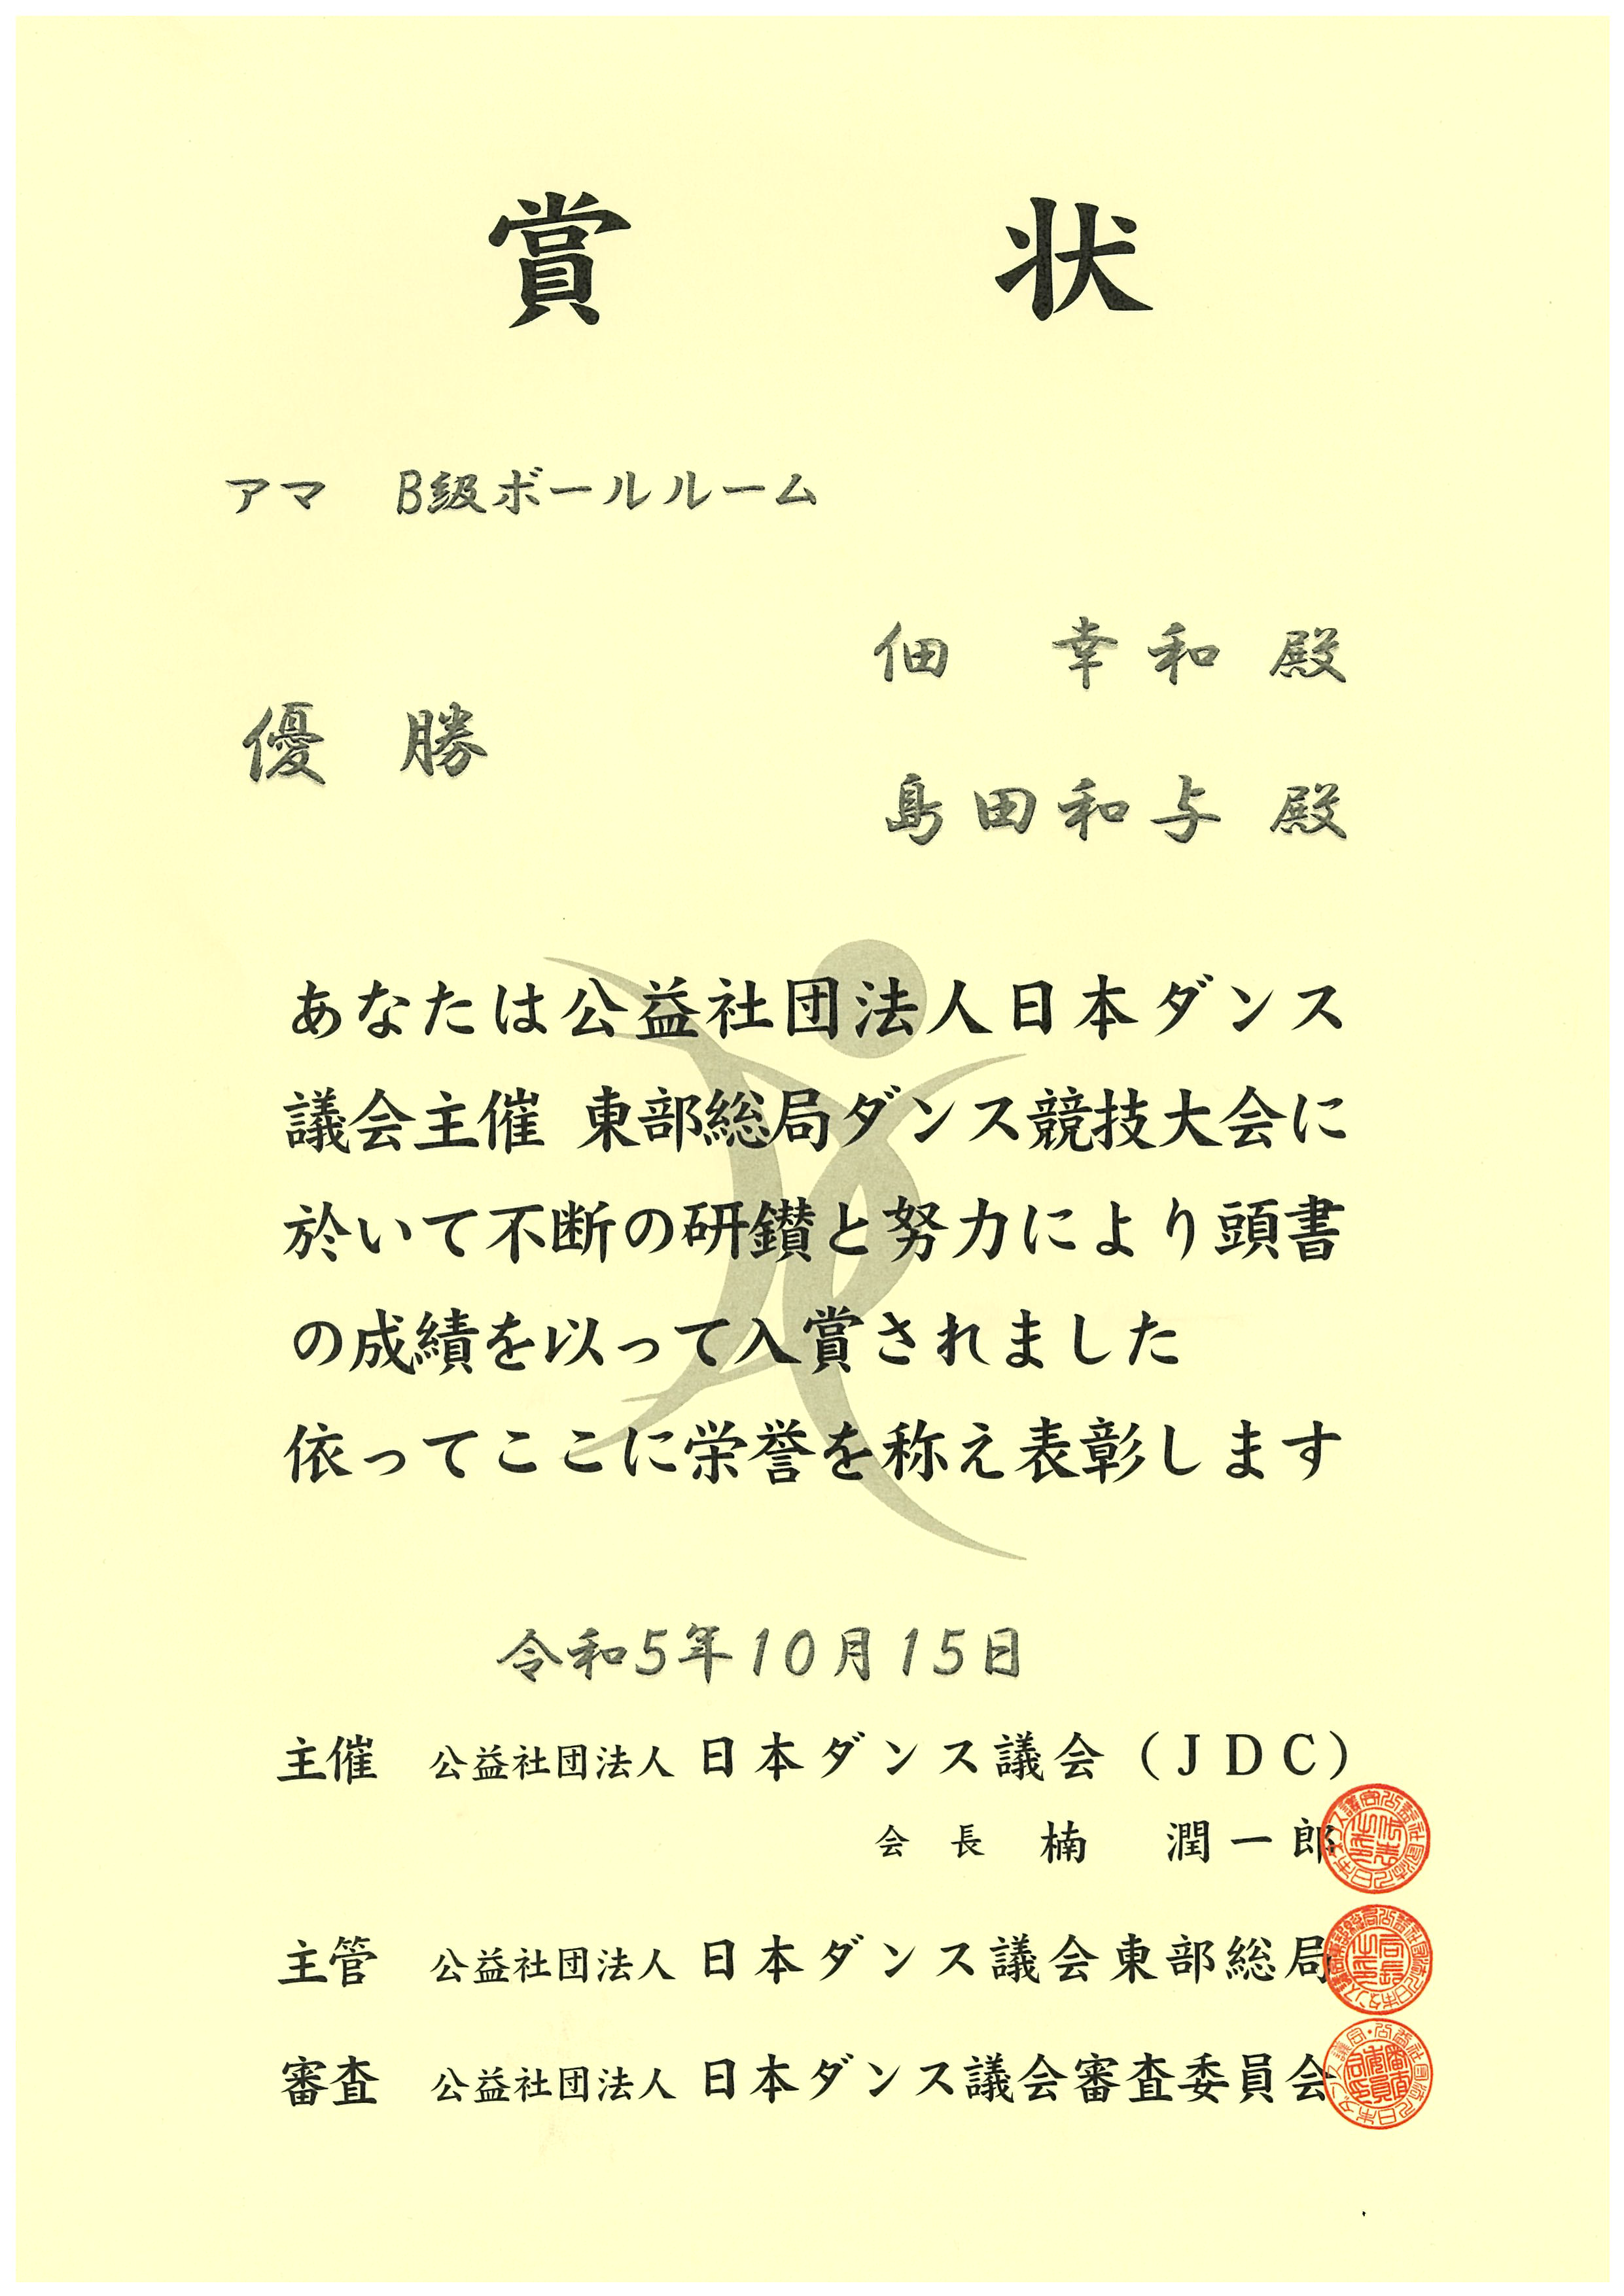 賞状
アマ　B級ボールルーム
佃　幸和 殿
優勝
島田和与 殿
あなたは公益社団法人日本ダンス
議会主催 東部総局ダンス競技大会に
於いて不断の研鑚と努力により頭書
の成績を以って入賞されました
依ってここに栄誉を称え表彰します
令和5年10月15日
主催　公益社団法人 日本ダンス議会（JDC）
会長　楠　潤一郎
主管　公益社団法人 日本ダンス議会東部総局
審査　公益社団法人 日本ダンス議会審査委員会